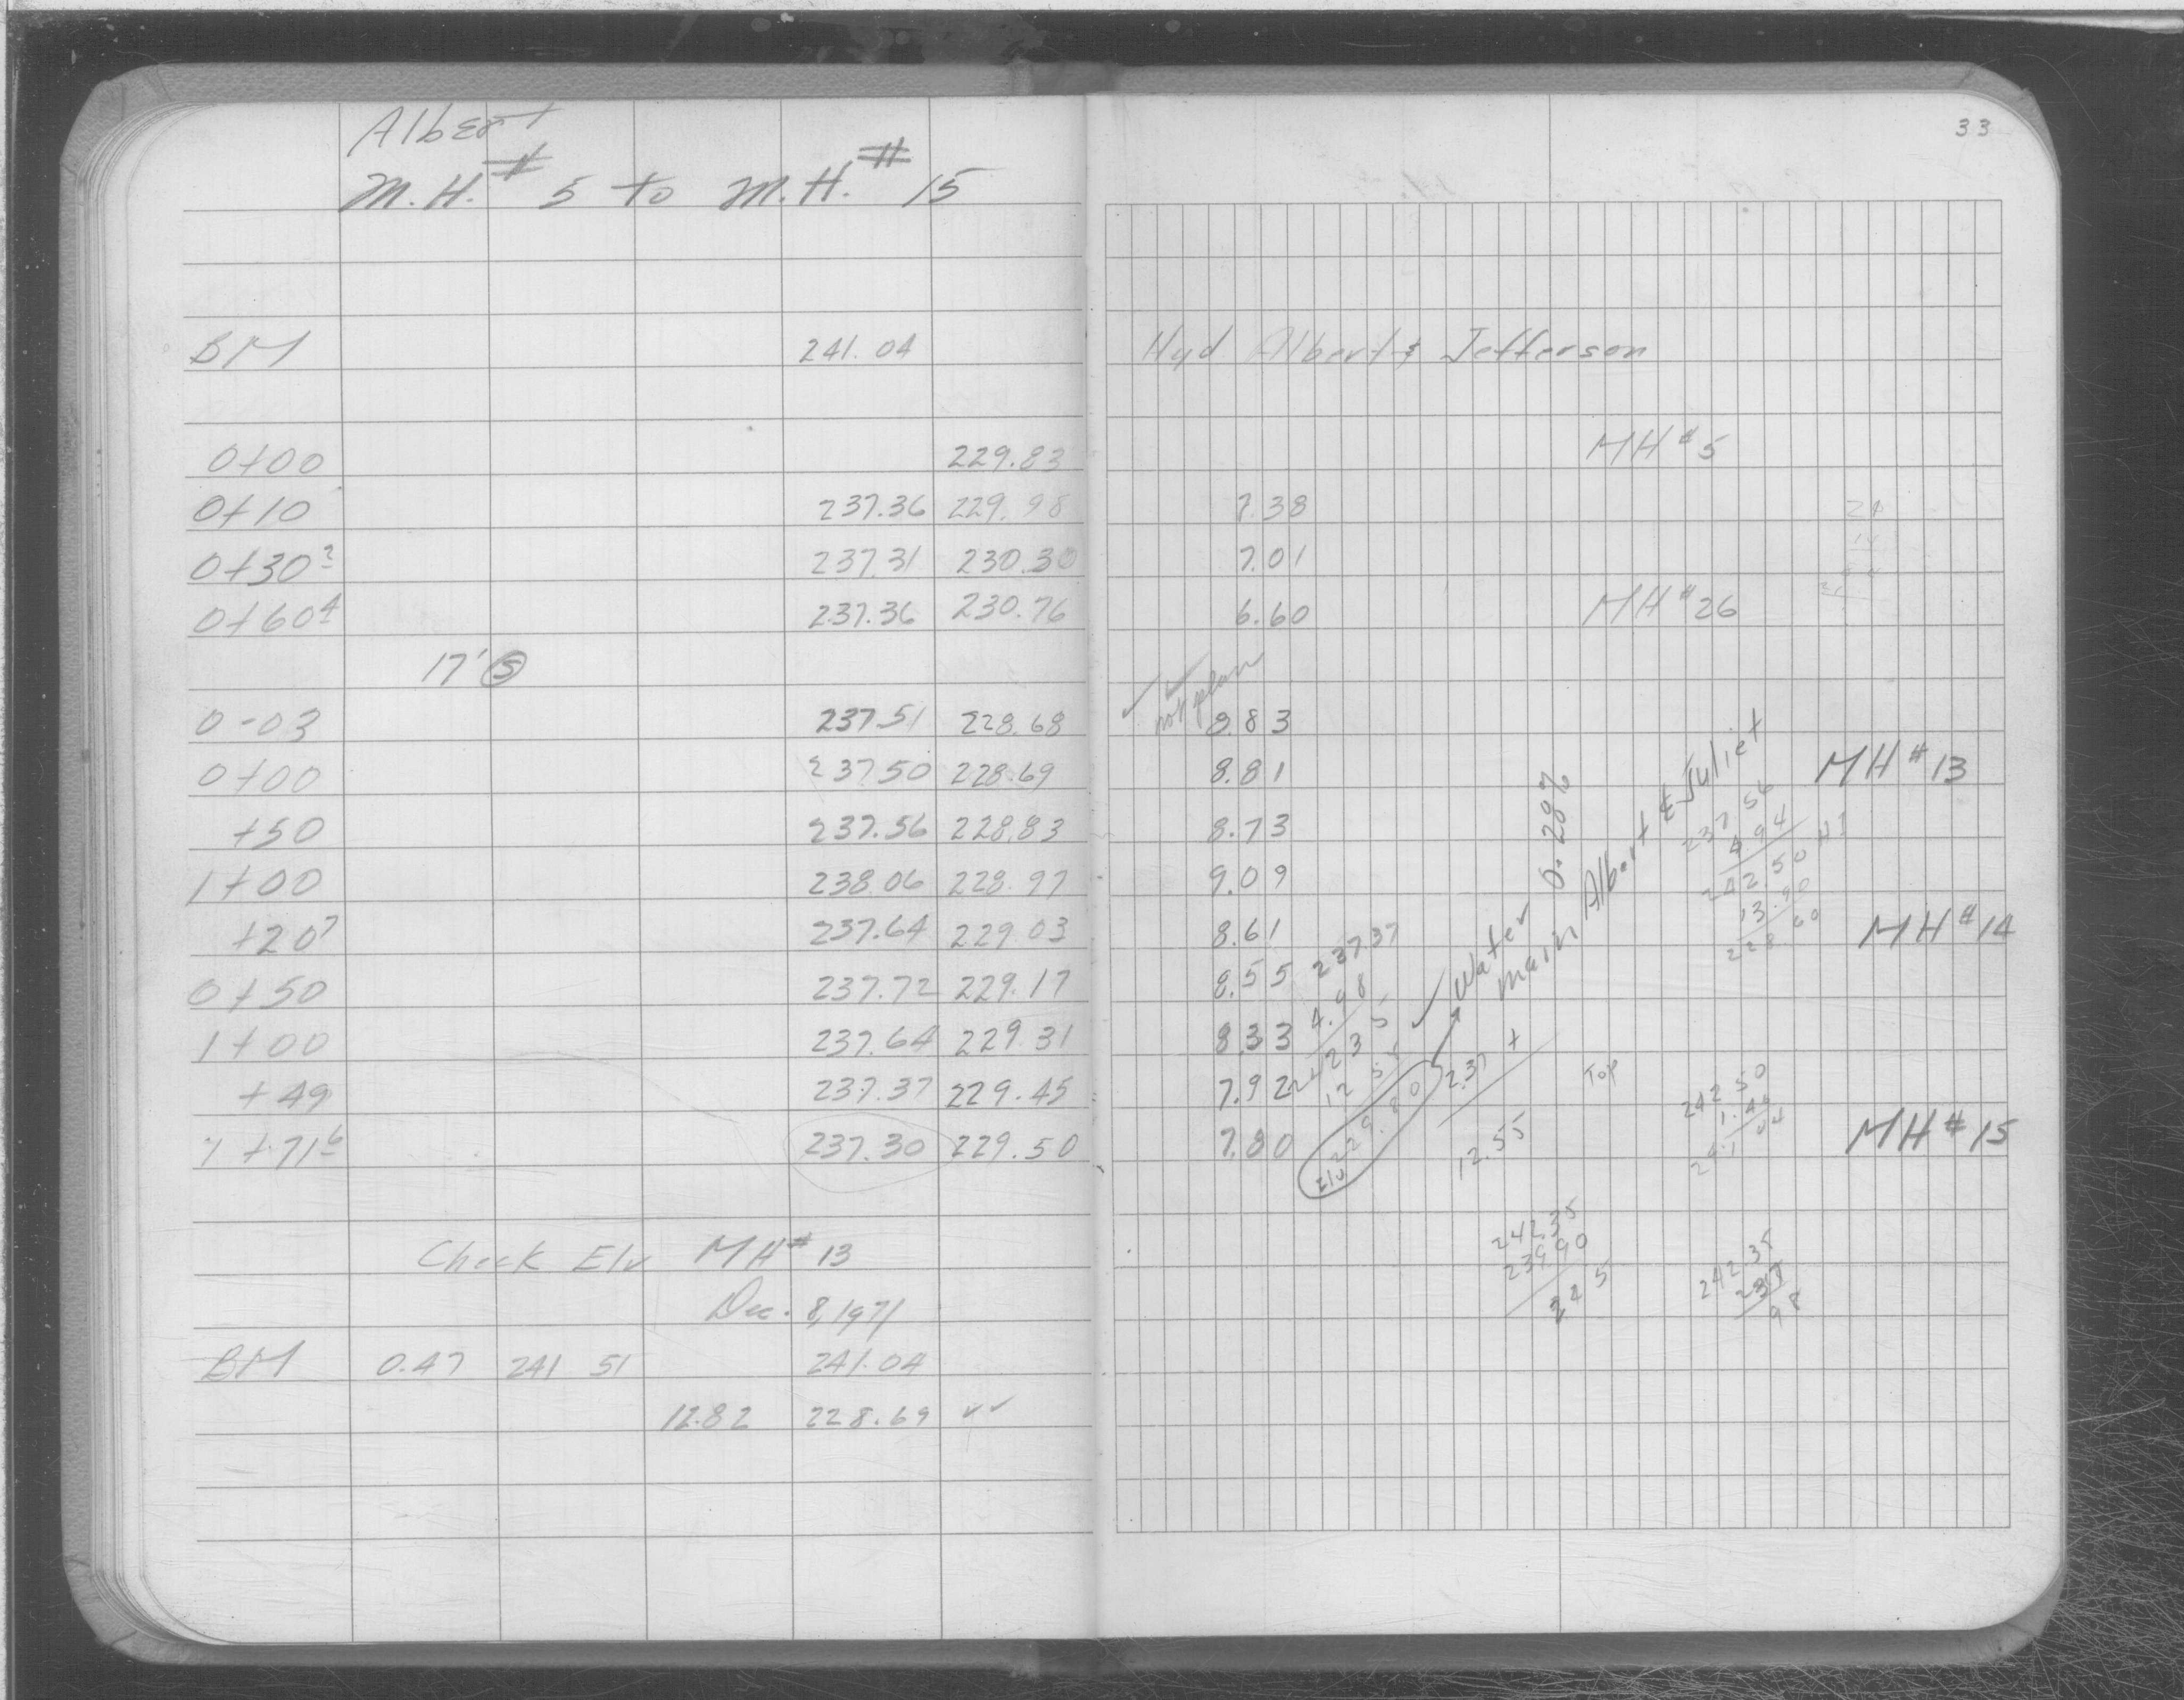 Albert
M.H.# 5 to M.H.# 15
33
BM 241.04 Hyd Albert & Jefferson
0+00 229.83 MH #5
0+10 237.36 229.98 7.38
0+30² 237.31 230.30 7.01
0+60⁴ 237.36 230.76 6.60 MH #26
17' S
not plan
0-03 237.51 228.68 8.83
0+00 237.50 228.69 8.81 MH #13
+50 237.56 228.83 8.73
1+00 238.06 228.97 9.09
+20⁷ 237.64 229.03 8.61 MH #14
0+50 237.72 229.17 8.55
1+00 237.64 229.31 8.33
+49 237.37 229.45 7.92
1+71⁶ 237.30 229.50 7.80 MH #15
0.28%
Water main Albert & Juliet
237.56
4.94
242.50 HI
13.90
228.60
237.37
4.98
Elv 229.80
2.37 +
12.55
Top
242.50
1.46
241.04
242.35
239.90
2.45
242.35
Check Elv MH# 13
Dec. 8, 1971
BM 0.47 241 51 241.04
12.82 228.69 ✓✓